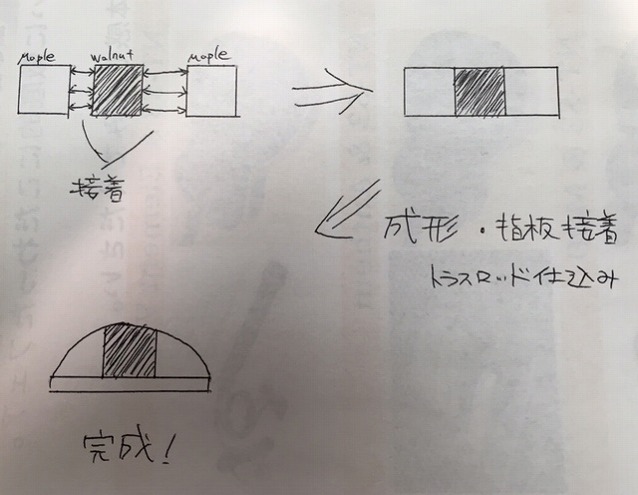 Maple
walnut
maple
接着
成形・指板接着
トラスロッド仕込み
完成!